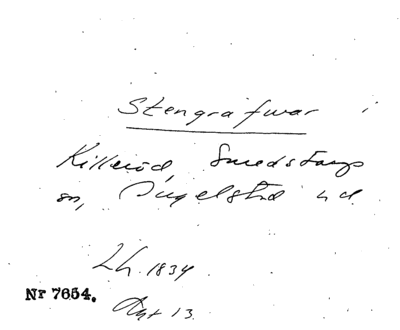 Stengrafwar i
Killeröd, Smedstorps
sn, Ingelstad hd.
Lh. 1834
Nr 7654.
13.